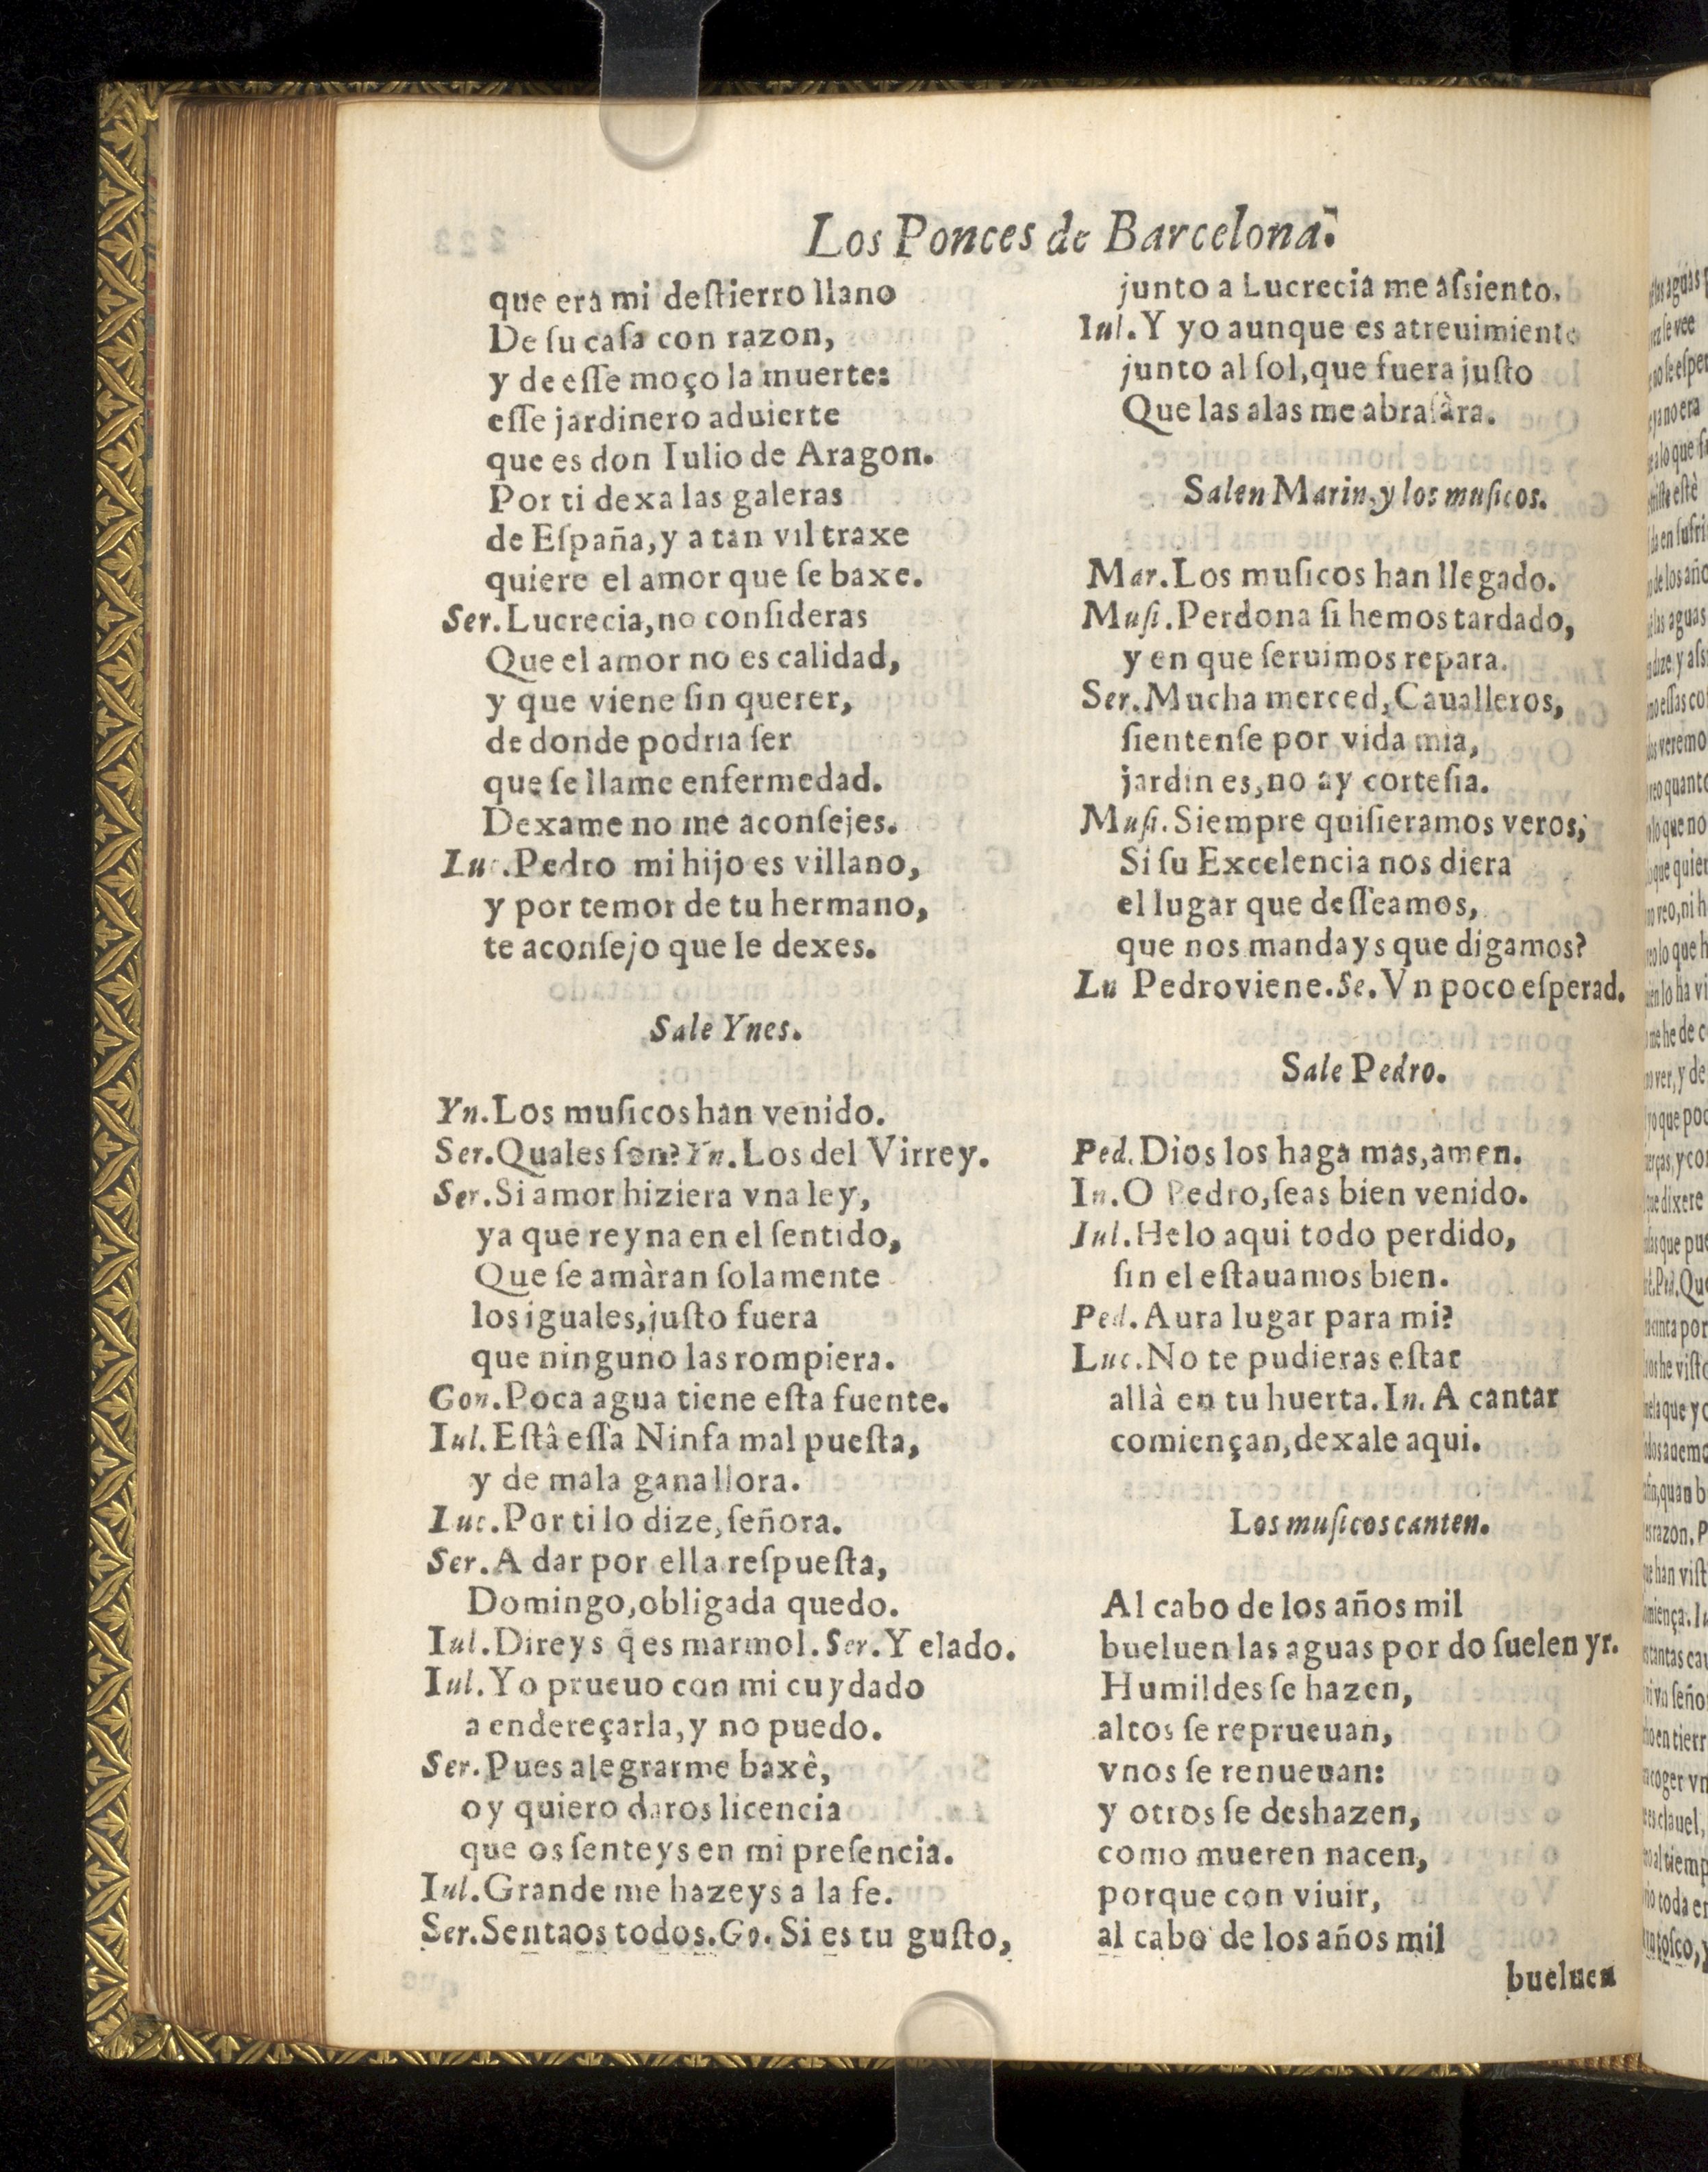 Los Ponces de Barcelona.
que era mi deſtierro llano
De ſu caſa con razon,
y de eſſe moço la muerte:
eſſe jardinero aduierte
que es don Iulio de Aragon.
Por ti dexa las galeras
de Eſpaña, y a tan vil traxe
quiere el amor que ſe baxe.
Ser. Lucrecia, no conſideras
Que el amor no es calidad,
y que viene ſin querer,
de donde podria ſer
que ſe llame enfermedad.
Dexame no me aconſejes.
Luc. Pedro mi hijo es villano,
y por temor de tu hermano,
te aconſejo que le dexes.
Sale Ynes.
Yn. Los muſicos han venido.
Ser. Quales ſon? Yn. Los del Virrey.
Ser. Si amor hiziera vna ley,
ya que reyna en el ſentido,
Que ſe amàran ſolamente
los iguales, juſto fuera
que ninguno las rompiera.
Gon. Poca agua tiene eſta fuente.
Iul. Eſtâ eſſa Ninfa mal pueſta,
y de mala gana llora.
Luc. Por ti lo dize, ſeñora.
Ser. A dar por ella reſpueſta,
Domingo, obligada quedo.
Iul. Direys q̃ es marmol. Ser. Y elado.
Iul. Yo prueuo con mi cuydado
a endereçarla, y no puedo.
Ser. Pues alegrarme baxê,
oy quiero daros licencia
que os ſenteys en mi preſencia.
Iul. Grande me hazeys a la fe.
Ser. Sentaos todos. Go. Si es tu guſto,
junto a Lucrecia me aſsiento.
Iul. Y yo aunque es atreuimiento
junto al ſol, que fuera juſto
Que las alas me abraſàra.
Salen Marin, y los muſicos.
Mar. Los muſicos han llegado.
Muſi. Perdona ſi hemos tardado,
y en que ſeruimos repara.
Ser. Mucha merced, Caualleros,
ſientenſe por vida mia,
jardin es, no ay corteſia.
Muſi. Siempre quiſieramos veros,
Si ſu Excelencia nos diera
el lugar que deſſeamos,
que nos mandays que digamos?
Lu Pedro viene. Se. Vn poco eſperad.
Sale Pedro.
Ped. Dios los haga mas, amen.
In. O Pedro, ſeas bien venido.
Iul. Helo aqui todo perdido,
ſin el eſtauamos bien.
Ped. Aura lugar para mi?
Luc. No te pudieras eſtar
allà en tu huerta. In. A cantar
comiençan, dexale aqui.
Los muſicos canten.
Al cabo de los años mil
bueluen las aguas por do ſuelen yr.
Humildes ſe hazen,
altos ſe reprueuan,
vnos ſe renueuan:
y otros ſe deshazen,
como mueren nacen,
porque con viuir,
al cabo de los años mil
bueluen